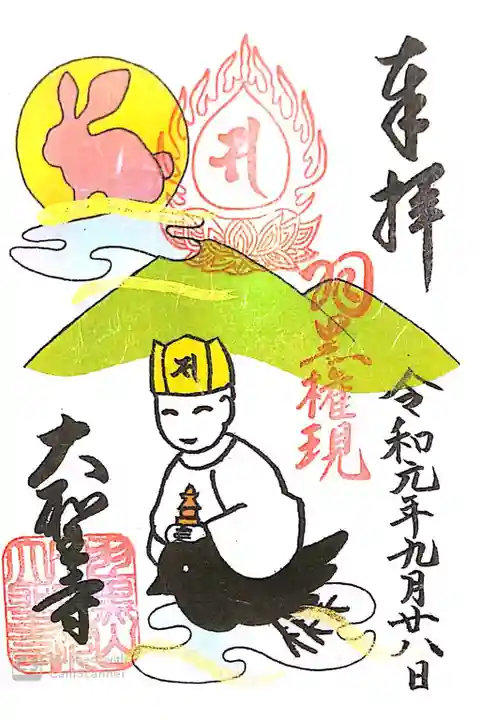 奉拝
羽黒権現
令和元年九月廿八日
大聖寺
CamScanner